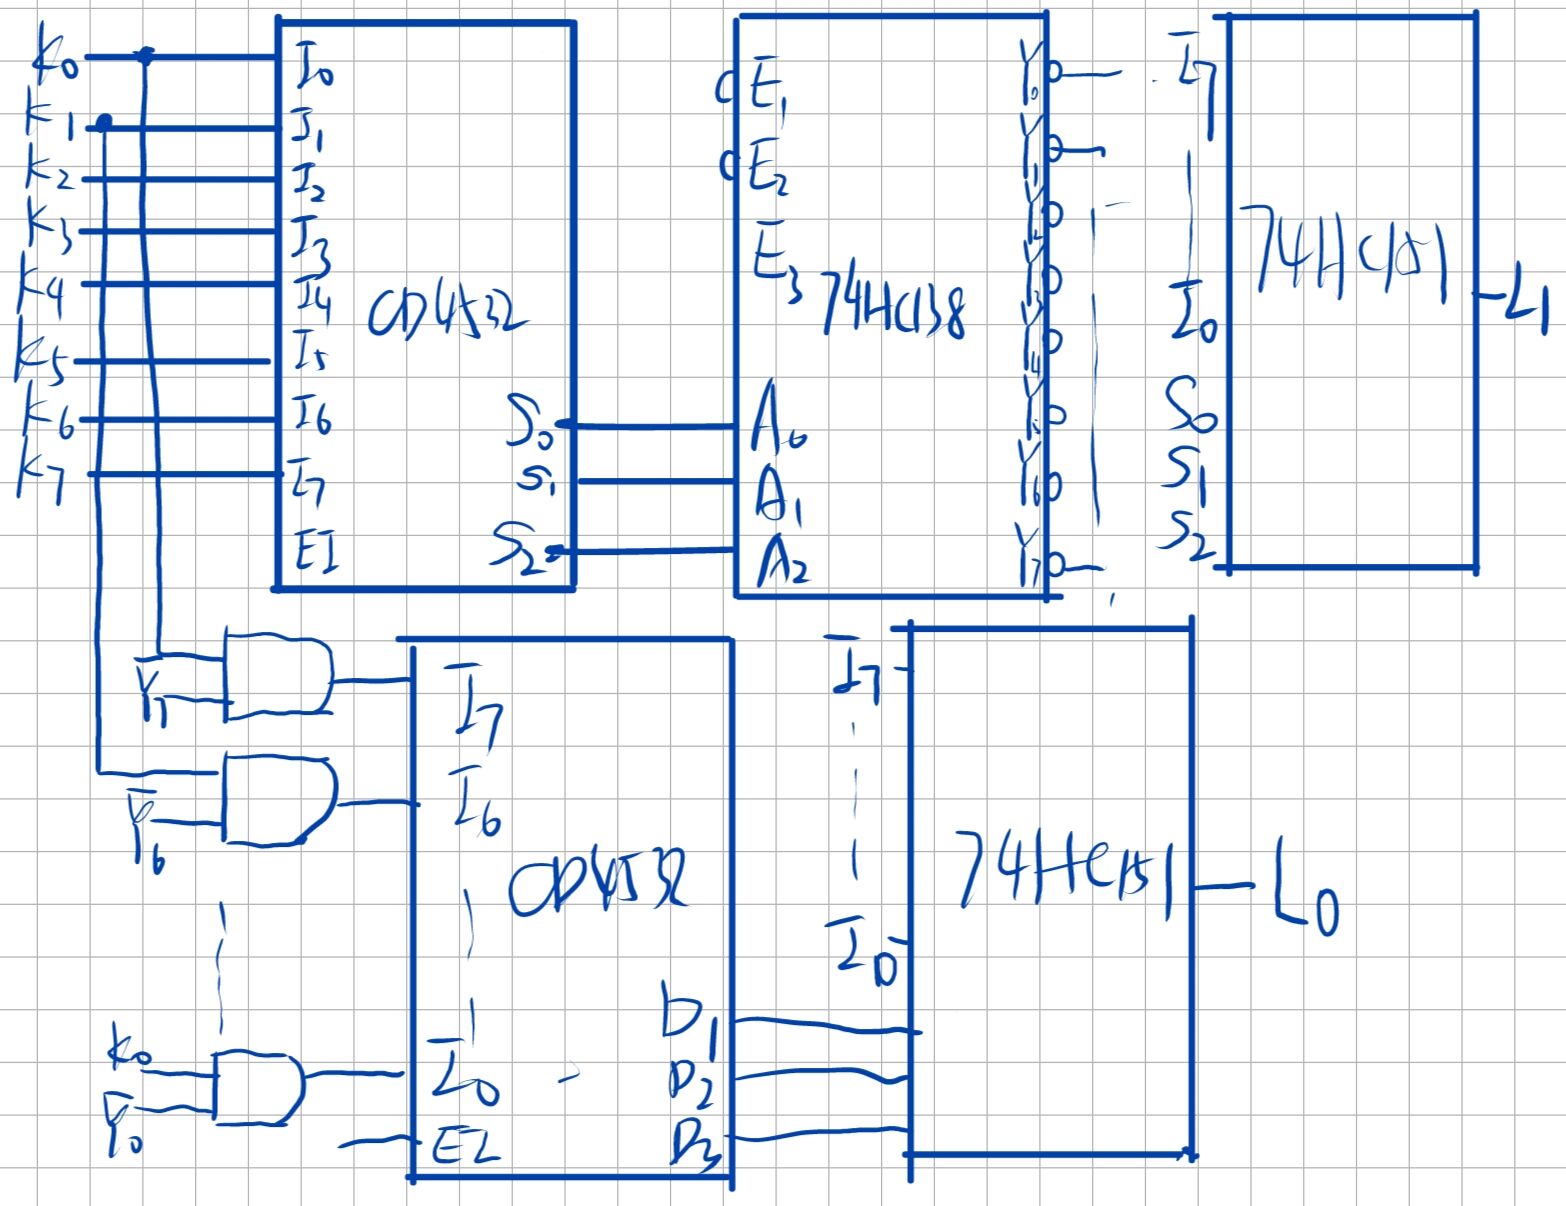 K0
K1
K2
K3
K4
K5
K6
K7
I0
I1
I2
I3
I4
I5
I6
I7
EI
CD4532
S0
S1
S2
E1
E2
E3
74HC138
A0
A1
A2
Y0
Y1
Y2
Y3
Y4
Y5
Y6
Y7
I7
I0
S0
S1
S2
74HC151
L1
Y̅7
Y̅6
K0
Y̅0
I7
I6
I0
EI
CD4532
D1
D2
D3
I7
I0
74HC151
L0